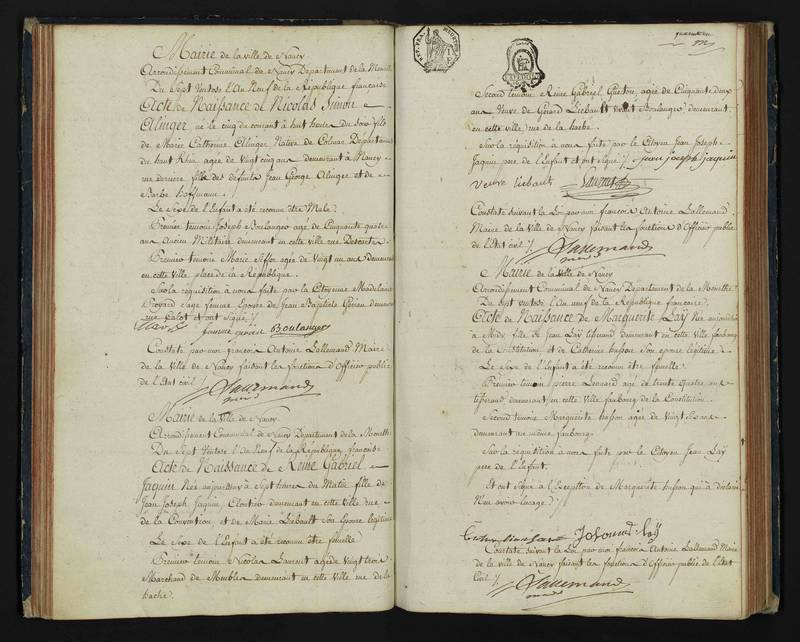 Mairie de la ville de Nancy
Arrondissement Communal de Nancy Département de la Meurthe
Du Sept Ventose l'An Neuf de la République française
Acte de Naissance de Nicolas Simon
Alinger, né le cinq du courant à huit heures du soir fils
de Marie Catherine Alinger Native de Colmar Département
du haut Rhin agée de Vingt cinq ans demeurant à Nancy
rue derriere fille des défunts Jean George Alinger et de
Barbe hoffmann.
Le Sexe de l'Enfant a été reconnu être Male.
Premier temoin Joseph Boulanger agé de Cinquante quatre
ans Ancien Militaire demeurant en cette ville rue Descartes
Premier temoin Marie agée de Vingt un ans demeurant
en cette Ville place de la République.
Sur la réquisition à nous faite par la Citoyenne Madelaine
Sage femme Epouse de Jean Baptiste demeurant
rue et ont signé
femme Boulanger
Constaté par moi françois Antoine Lallemand Maire
de la Ville de Nancy faisant les fonctions d'Officier public
de l'Etat civil
Lallemand
Mairie de la Ville de Nancy
Arrondissement Communal de Nancy Département de la Meurthe
Du Sept Ventose l'An Neuf de la République française
Acte de Naissance de Reine Gabriel
Jaquin Née à Sept heures du Matin fille de
Jean Joseph Jaquin, demeurant en cette Ville rue
de la Convention et de Marie Liebault Son Epouse legitime
Le Sexe de l'Enfant a été reconnu être femelle
Premier temoin Nicolas Laurent agé de Vingt trois
Marchand de Meubles demeurant en cette Ville rue de la
hache.
Second temoin Reine Gabriel agée de Cinquante deux
ans Veuve de Gerard Liebault Boulanger demeurant
en cette ville rue de la hache.
Sur la réquisition à nous faite par le Citoyen Jean Joseph
Jaquin pere de l'Enfant et ont signé jean joseph jaquin
veuve liebault Laurent
Constaté suivant la Loi par moi françois Antoine Lallemand
Maire de la Ville de Nancy faisant les fonctions d'Officier public
de l'Etat civil
Lallemand
Mairie de la Ville de Nancy
Arrondissement Communal de Nancy Département de la Meurthe
Du Sept Ventose l'an neuf de la République française
Acte de Naissance de Marguerite Laÿ Née aujourdhui
à Midi fille de Jean Laÿ demeurant en cette ville faubourg
de la Constitution et de Catherine husson Son epouse legitime
Le Sexe de l'Enfant a été reconnu être femelle
Premier temoin pierre Leonard agé de trente quatre ans
demeurant en cette Ville faubourg de la Constitution.
Second temoin Marguerite husson agée de Vingt six ans
demeurant même faubourg.
Sur la réquisition à nous faite par le Citoyen Jean Laÿ
pere de l'Enfant.
Et ont Signé à l'exception de Marguerite husson qui a déclaré
N'en avoir l'usage
laÿ
Constaté suivant la Loi par moi françois Antoine Lallemand Maire
de la ville de Nancy faisant les fonctions d'Officier public de l'Etat
Civil
Lallemand